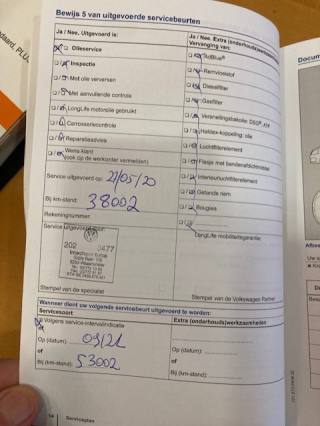 Bewijs 5 van uitgevoerde servicebeurten
Ja / Nee, Uitgevoerd is:
Ja / Nee, Extra (onderhouds)werkzaamheden
Vervanging van:
Olieservice
AdBlue®
Inspectie
Remvloeistof
Met olie verversen
Dieselfilter
Met aanvullende controle
Gasfilter
LongLife motorolie gebruikt
Versnellingsbakolie DSG®
Carrosseriecontrole
Haldex-koppeling: olie
Reparatieadvies
Luchtfilterelement
Wens klant
(ook op de werkorder vermelden)
Flesje met bandenafdichtmiddel
Service uitgevoerd op: 27/05/20
Interieurluchtfilterelement
Getande riem
Bij km-stand: 38002
Bougies
Rekeningnummer:
LongLife mobiliteitsgarantie
Service uitgevoerd door:
202
3477
Stempel van de specialist
Stempel van de Volkswagen Partner
Wanneer dient uw volgende servicebeurt uitgevoerd te worden:
Servicesoort
Extra (onderhouds)werkzaamheden
Volgens service-intervalindicatie
of
Op (datum): 09/21
Op (datum):
of
of
Bij (km-stand): 53002
Bij (km-stand):
54 Serviceplan